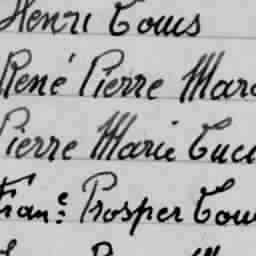 Henri Louis
René Pierre Mar
Pierre Marie Luci
Fran.e Prosper Lou